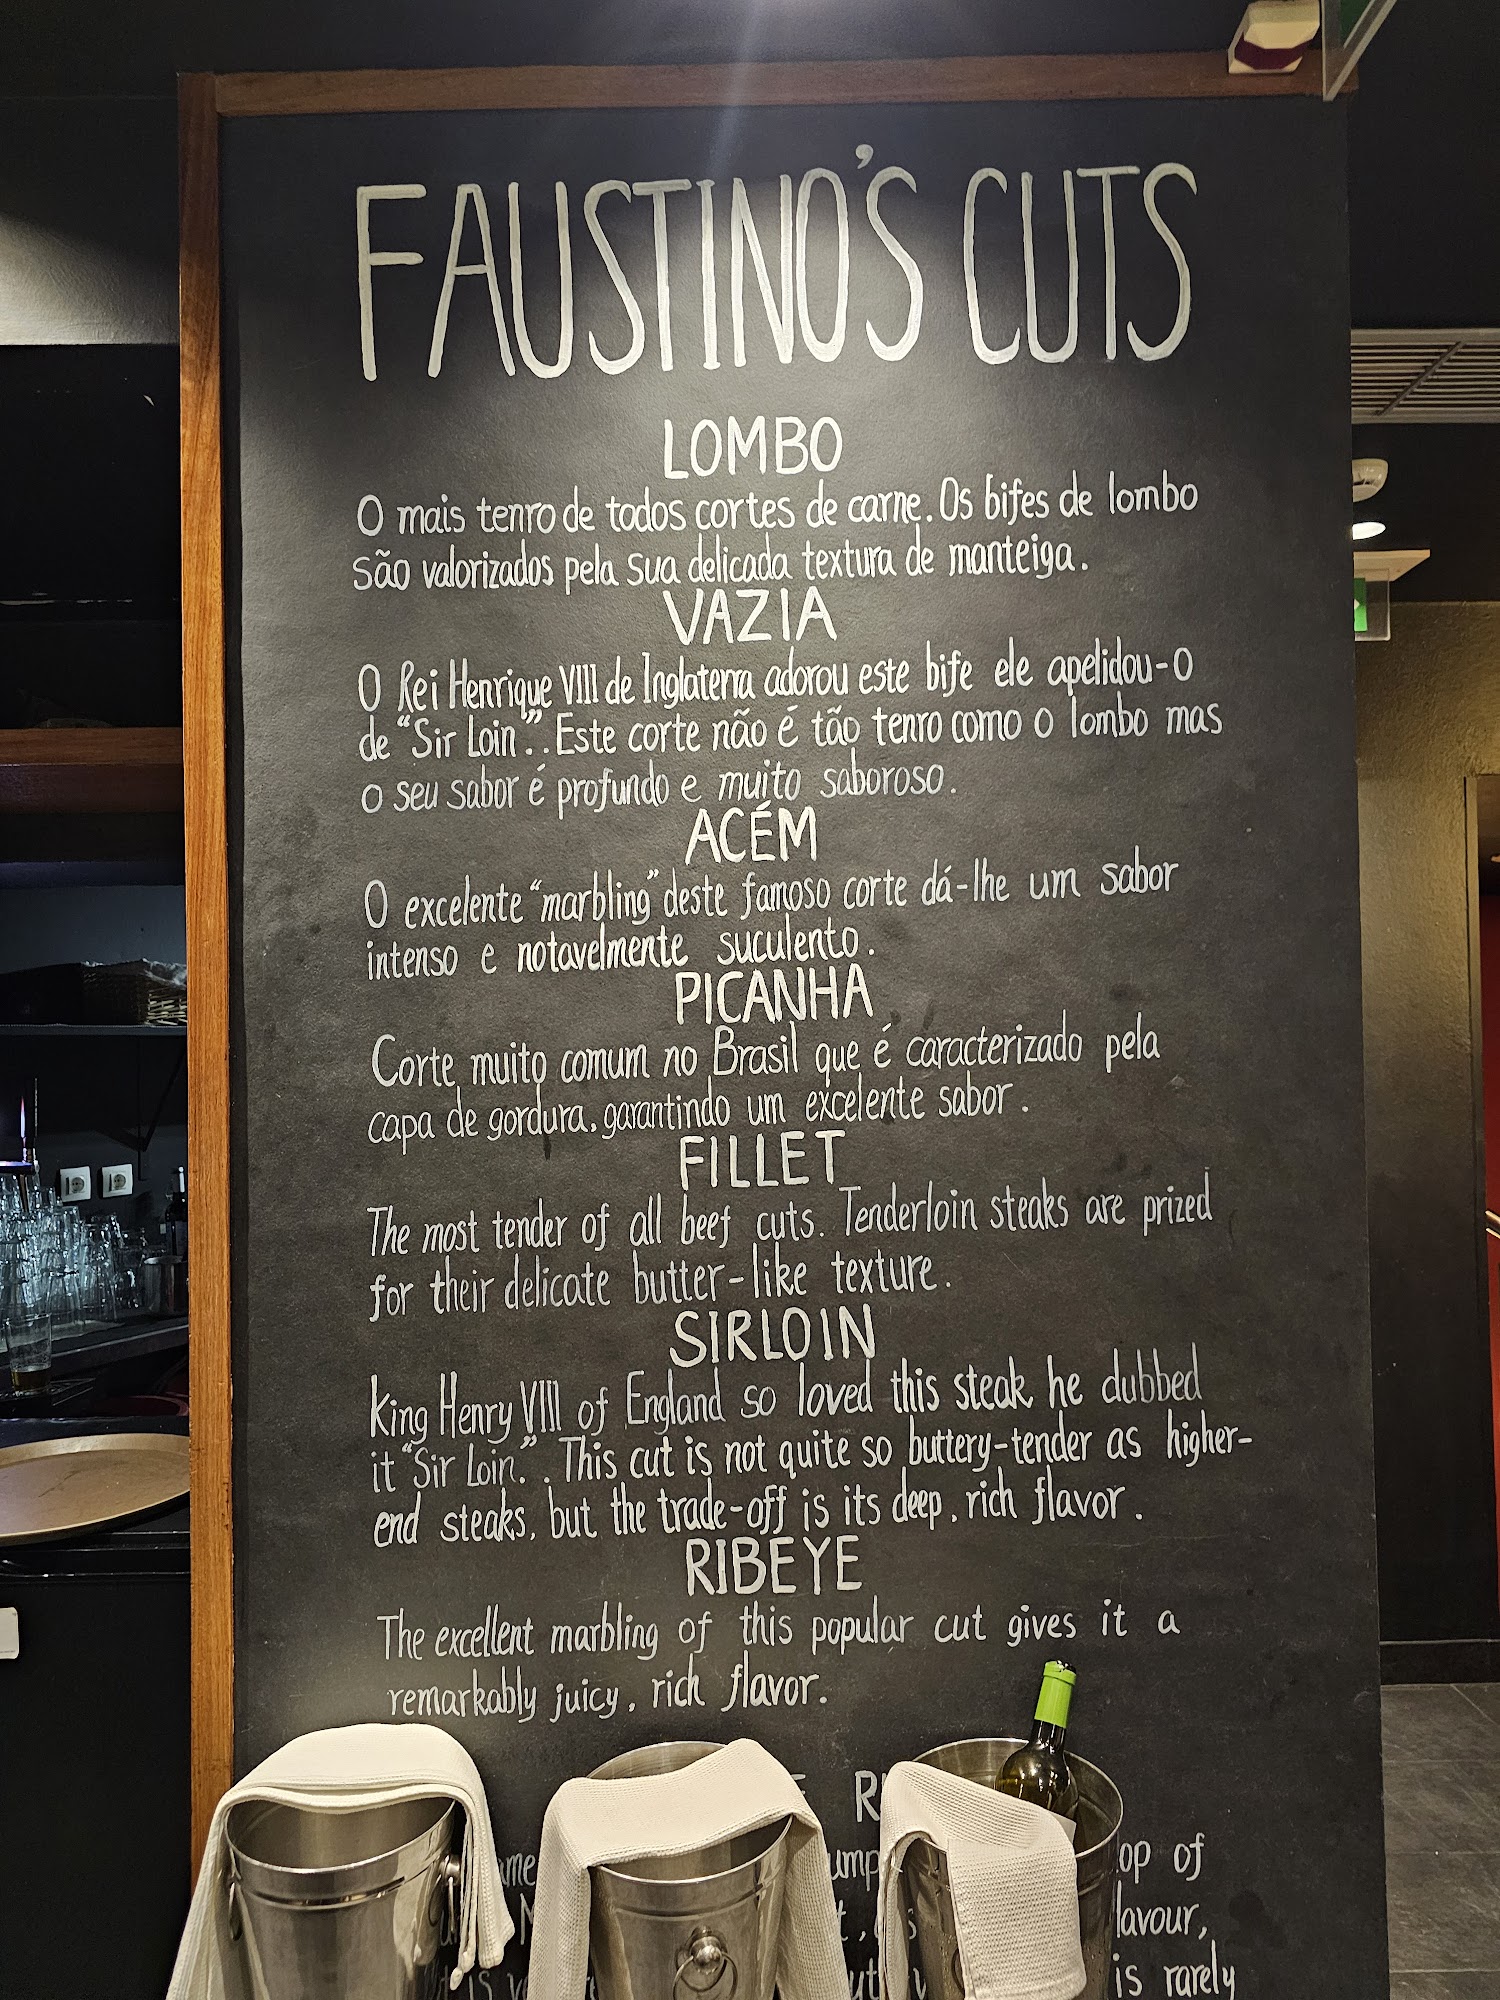 FAUSTINO'S CUTS
LOMBO
O mais tenro de todos cortes de carne. Os bifes de lombo
são valorizados pela sua delicada textura de manteiga.
VAZIA
O Rei Henrique VIII de Inglaterra adorou este bife ele apelidou-o
de "Sir Loin".. Este corte não é tão tenro como o lombo mas
o seu sabor é profundo e muito saboroso.
ACÉM
O excelente "marbling" deste famoso corte dá-lhe um sabor
intenso e notavelmente suculento.
PICANHA
Corte muito comum no Brasil que é caracterizado pela
capa de gordura, garantindo um excelente sabor.
FILLET
The most tender of all beef cuts. Tenderloin steaks are prized
for their delicate butter-like texture.
SIRLOIN
King Henry VIII of England so loved this steak he dubbed
it "Sir Loin.". This cut is not quite so buttery-tender as higher-
end steaks, but the trade-off is its deep, rich flavor.
RIBEYE
The excellent marbling of this popular cut gives it a
remarkably juicy, rich flavor.
of
is rarely